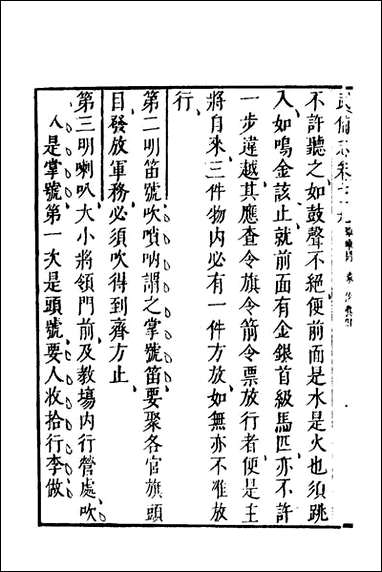 不許聽之如鼓聲不絕便前而是水是火也須跳
入如鳴金該止就前面有金銀首級馬匹亦不許
一步違越其應查令旗令箭令票放行者便是主
將自來三件物內必有一件方放如無亦不准放
行
第二明笛號吹嗩吶謂之掌號笛要聚各官旗頭
目發放軍務必須吹得到齊方止
第三明喇叭大小將領門前及教場內行營處吹
人是掌號第一次是頭號要人收拾行李做